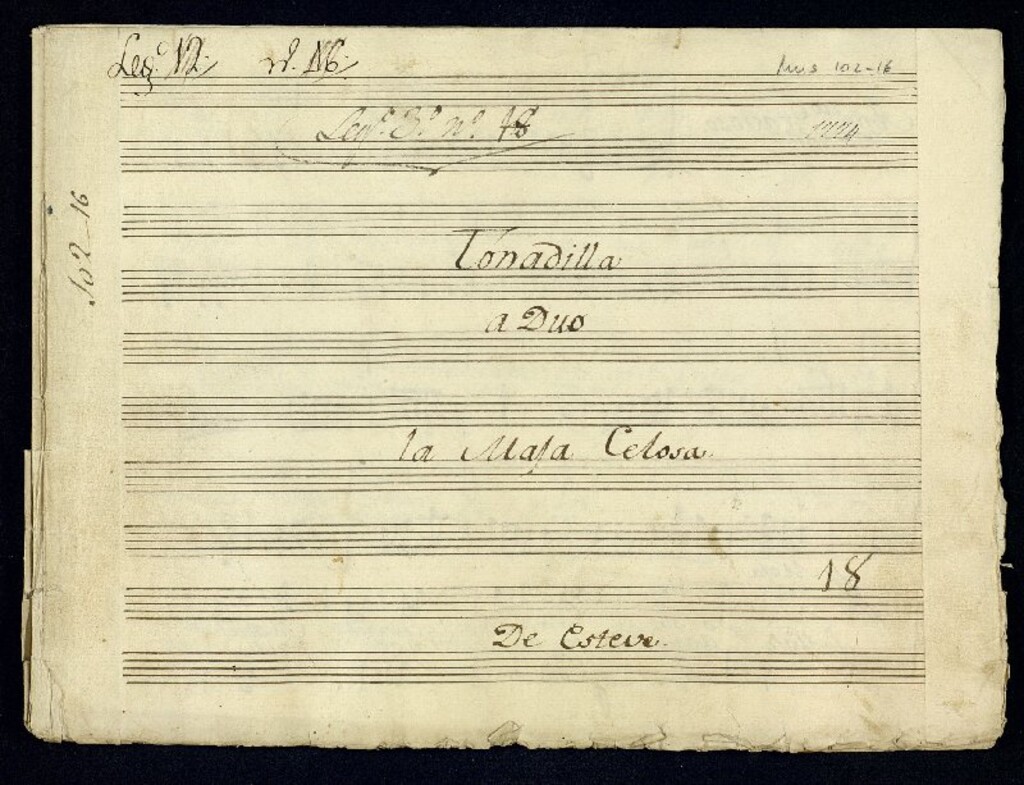 Leg.º 12. nº. 16.
Mus 102-16
Leg.º 3.º nº. 18
1774
102-16
Tonadilla
a Duo
la Maja Celosa.
18
De Esteve.